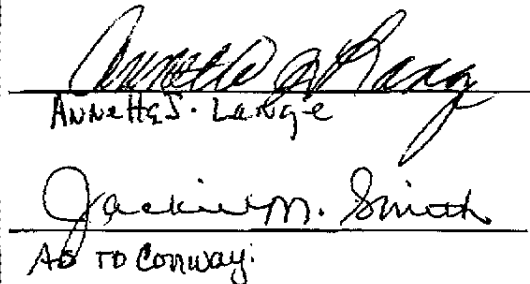 Annette J. Lange
Annette J. Lange
Jackie M. Smith
As to Conway: